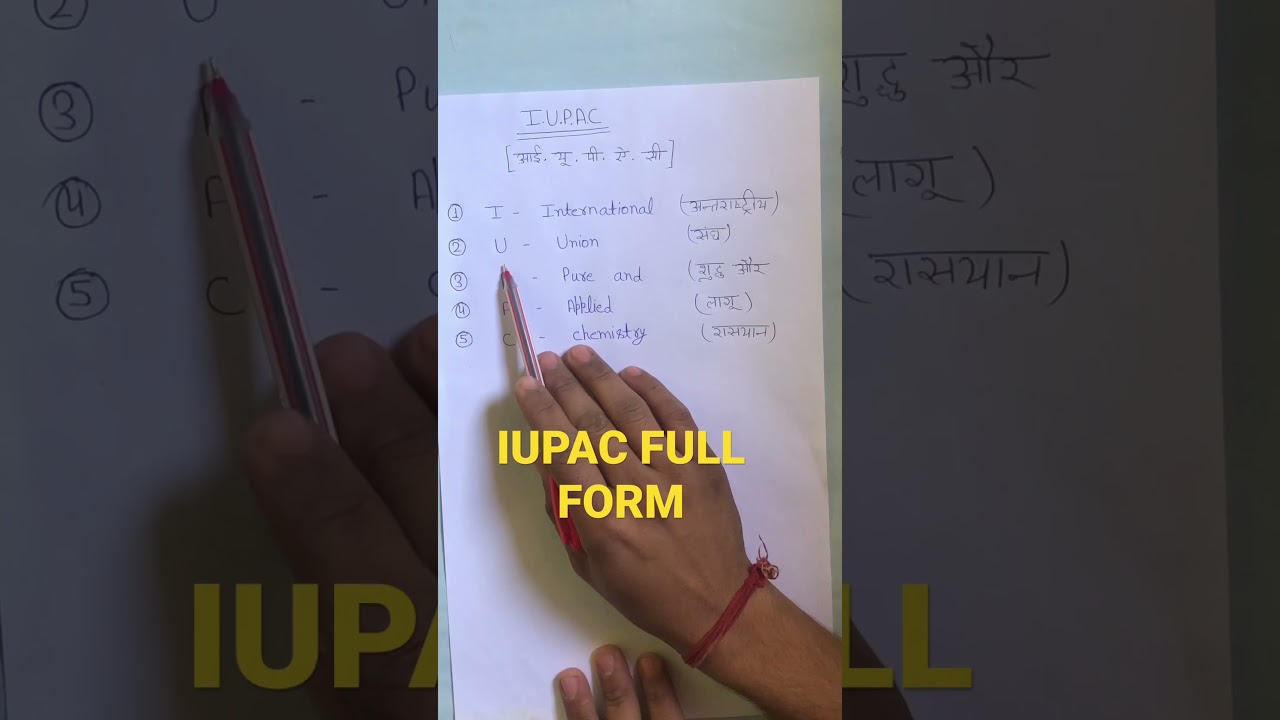 I.U.P.A.C
[आई. यू. पी. ऐ. सी]
① I - International (अन्तराष्ट्रीय)
② U - Union (संघ)
③ - Pure and (शुद्ध और
④ A - Applied (लागू)
⑤ C - chemistry (रासयान)
IUPAC FULL
FORM